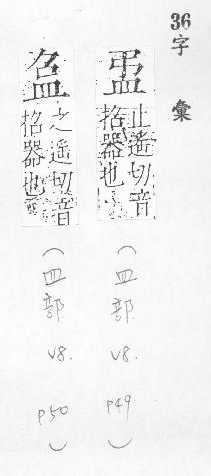 36字彙
盄
止遙切音
招器也
(皿部 V8. P49)
之遙切音
招器也
(皿部 V8. P50)